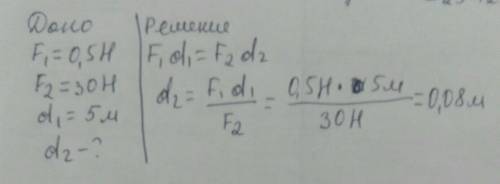 Дано
F₁=0,5Н
F₂=30Н
d₁=5м
d₂-?
Решение
F₁d₁=F₂d₂
d₂=F₁d₁/F₂=0,5Н·5м/30Н=0,08м